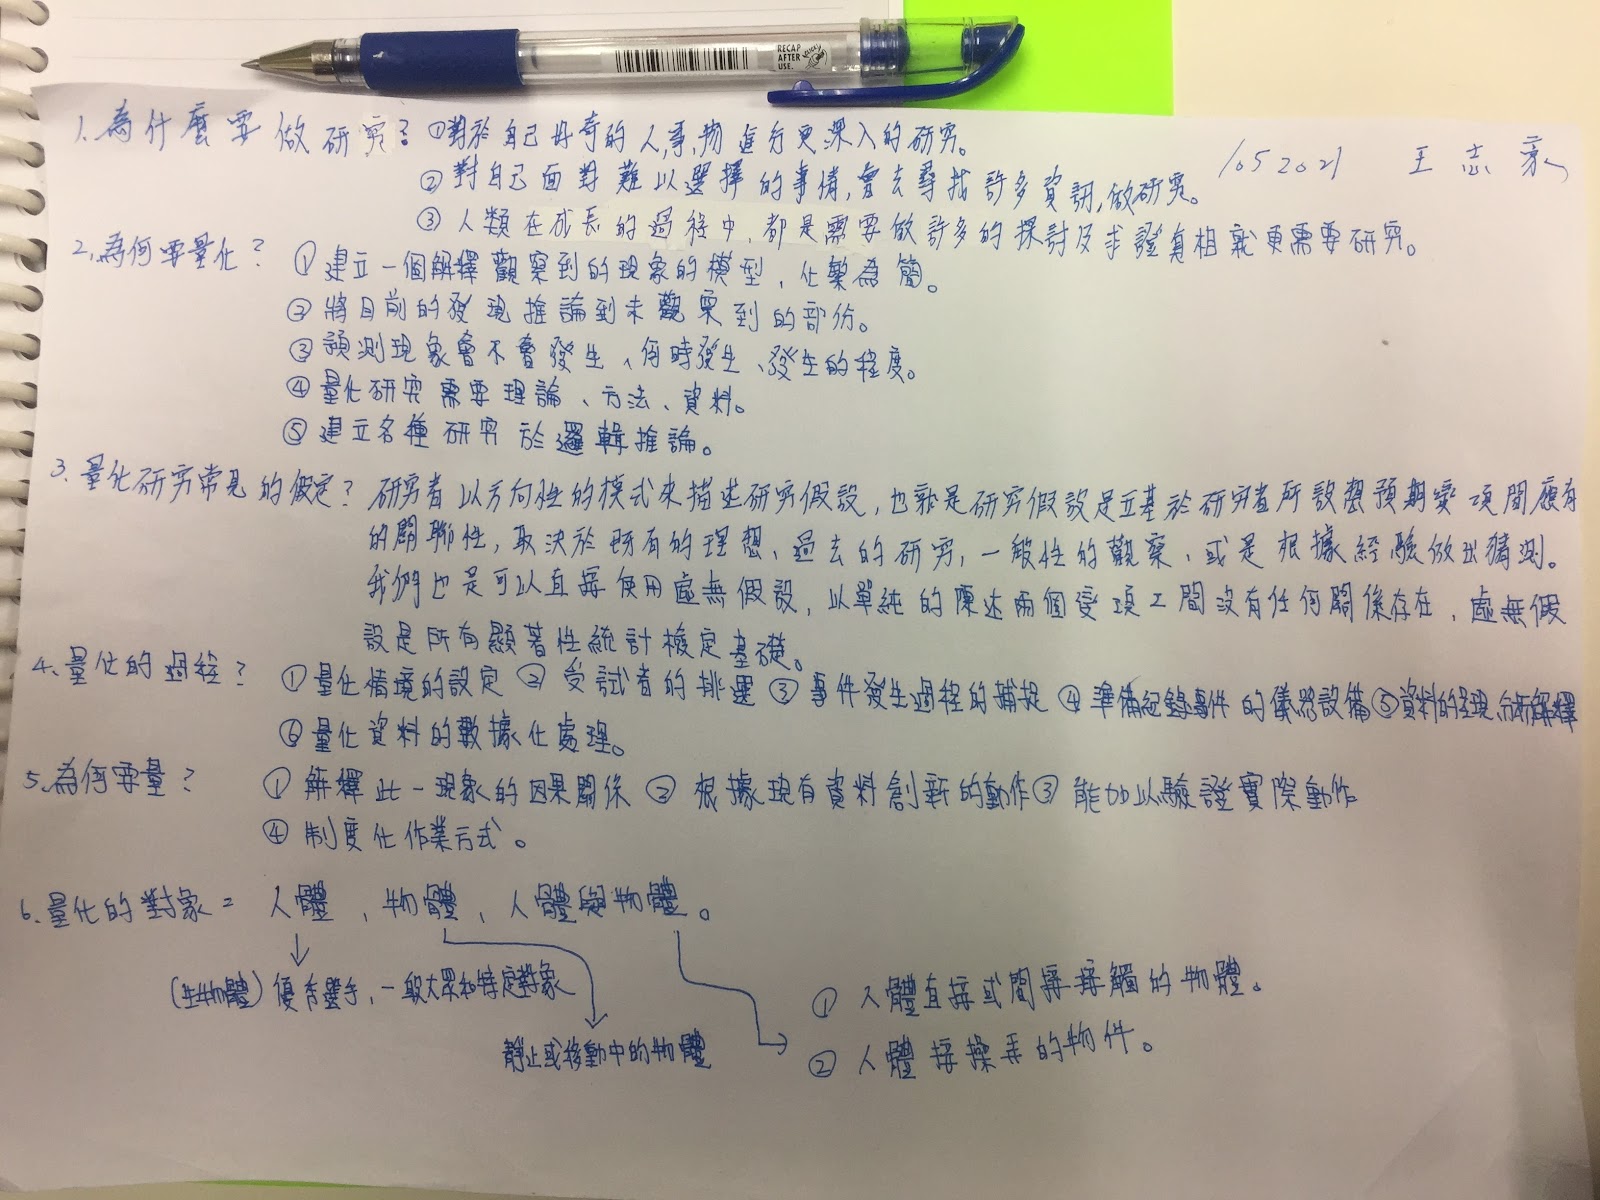 RECAP
AFTER
USE.
CLICK
1.為什麼要做研究? ①對於自己好奇的人,事,物進行更深入的研究。
1052021 王志豪
②對自己面對難以選擇的事情,會去尋找許多資訊,做研究。
③人類在成長的過程中,都是需要做許多的探討及求證真相就更需要研究。
2.為何要量化? ①建立一個解釋觀察到的現象的模型,化繁為簡。
②將目前的發現推論到未觀察到的部份。
③預測現象會不會發生、何時發生、發生的程度。
④量化研究需要理論、方法、資料。
⑤建立各種研究於邏輯推論。
3.量化研究常見的假定? 研究者以方向性的模式來描述研究假設,也就是研究假設是立基於研究者所設想預期變項間應有
的關聯性,取決於既有的理想、過去的研究,一般性的觀察、或是根據經驗做出猜測。
我們也是可以直接使用虛無假設,以單純的陳述兩個變項之間沒有任何關係存在,虛無假
設是所有顯著性統計檢定基礎。
4.量化的過程? ①量化情境的設定 ②受試者的挑選 ③事件發生過程的捕捉 ④準備紀錄事件的儀器設備 ⑤資料的呈現、分析解釋
⑥量化資料的數據化處理。
5.為何要量? ①解釋此一現象的因果關係 ②根據現有資料創新的動作 ③能加以驗證實際動作
④制度化作業方式。
6.量化的對象= 人體,物體,人體與物體。
(生物體)優秀選手,一般大眾和特定對象
①人體直接或間接接觸的物體。
靜止或移動中的物體
②人體接操弄的物件。